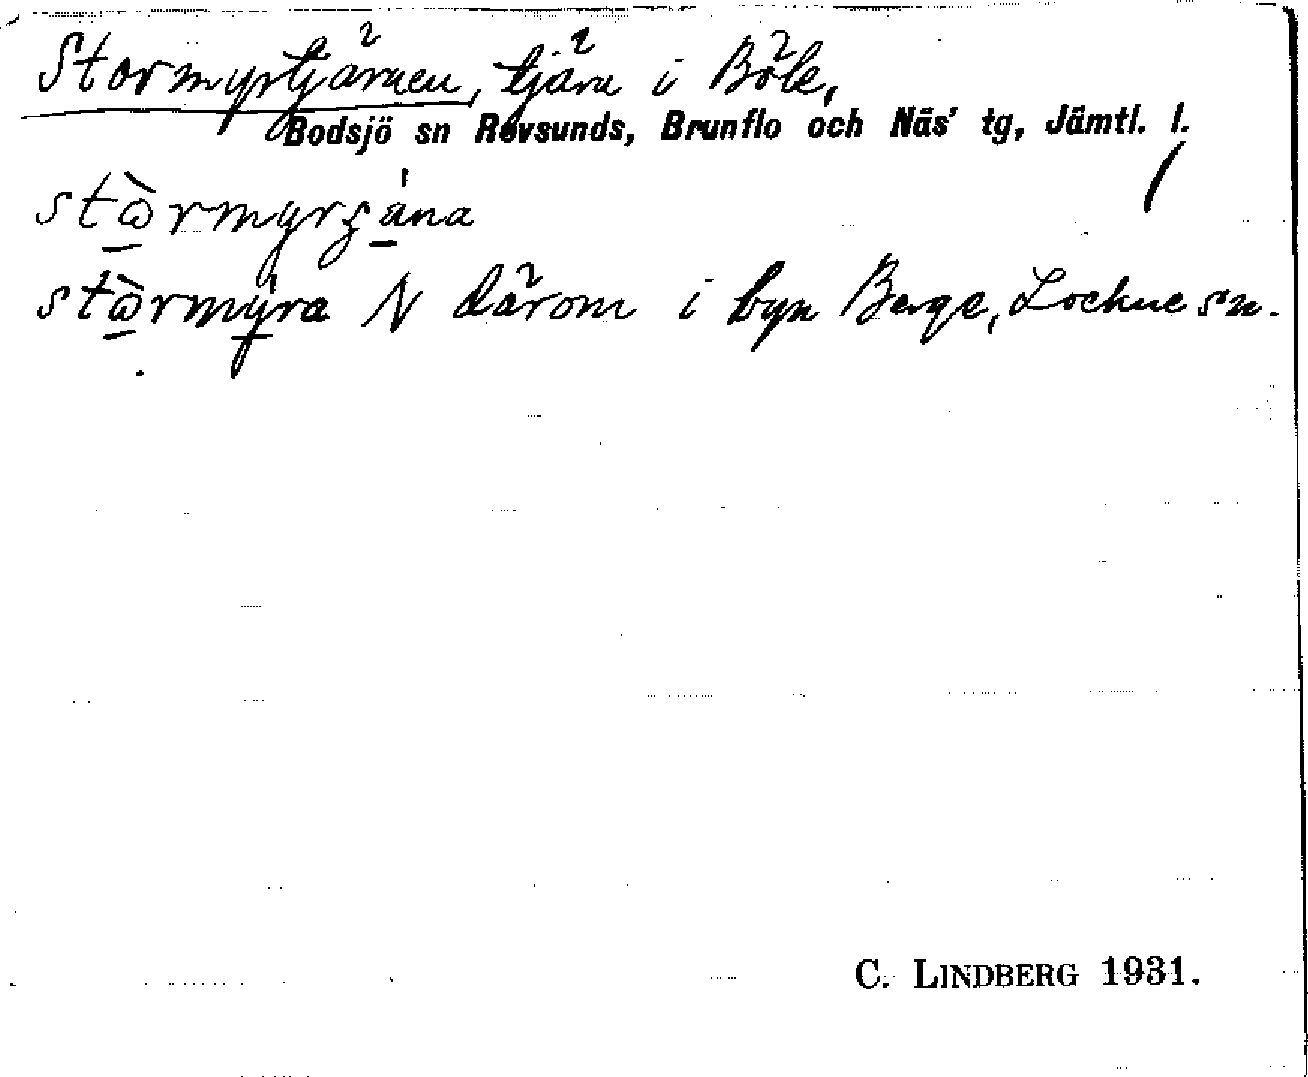 Stormyrtjärnen, tjärn i Böle,
Bodsjö sn Revsunds, Brunflo och Näs' tg, Jämtl. l.
stɷ̀rmyrʂána
stɷ̀rmýra N därom i byn Berge, Lockne sn.
C. LINDBERG 1931.